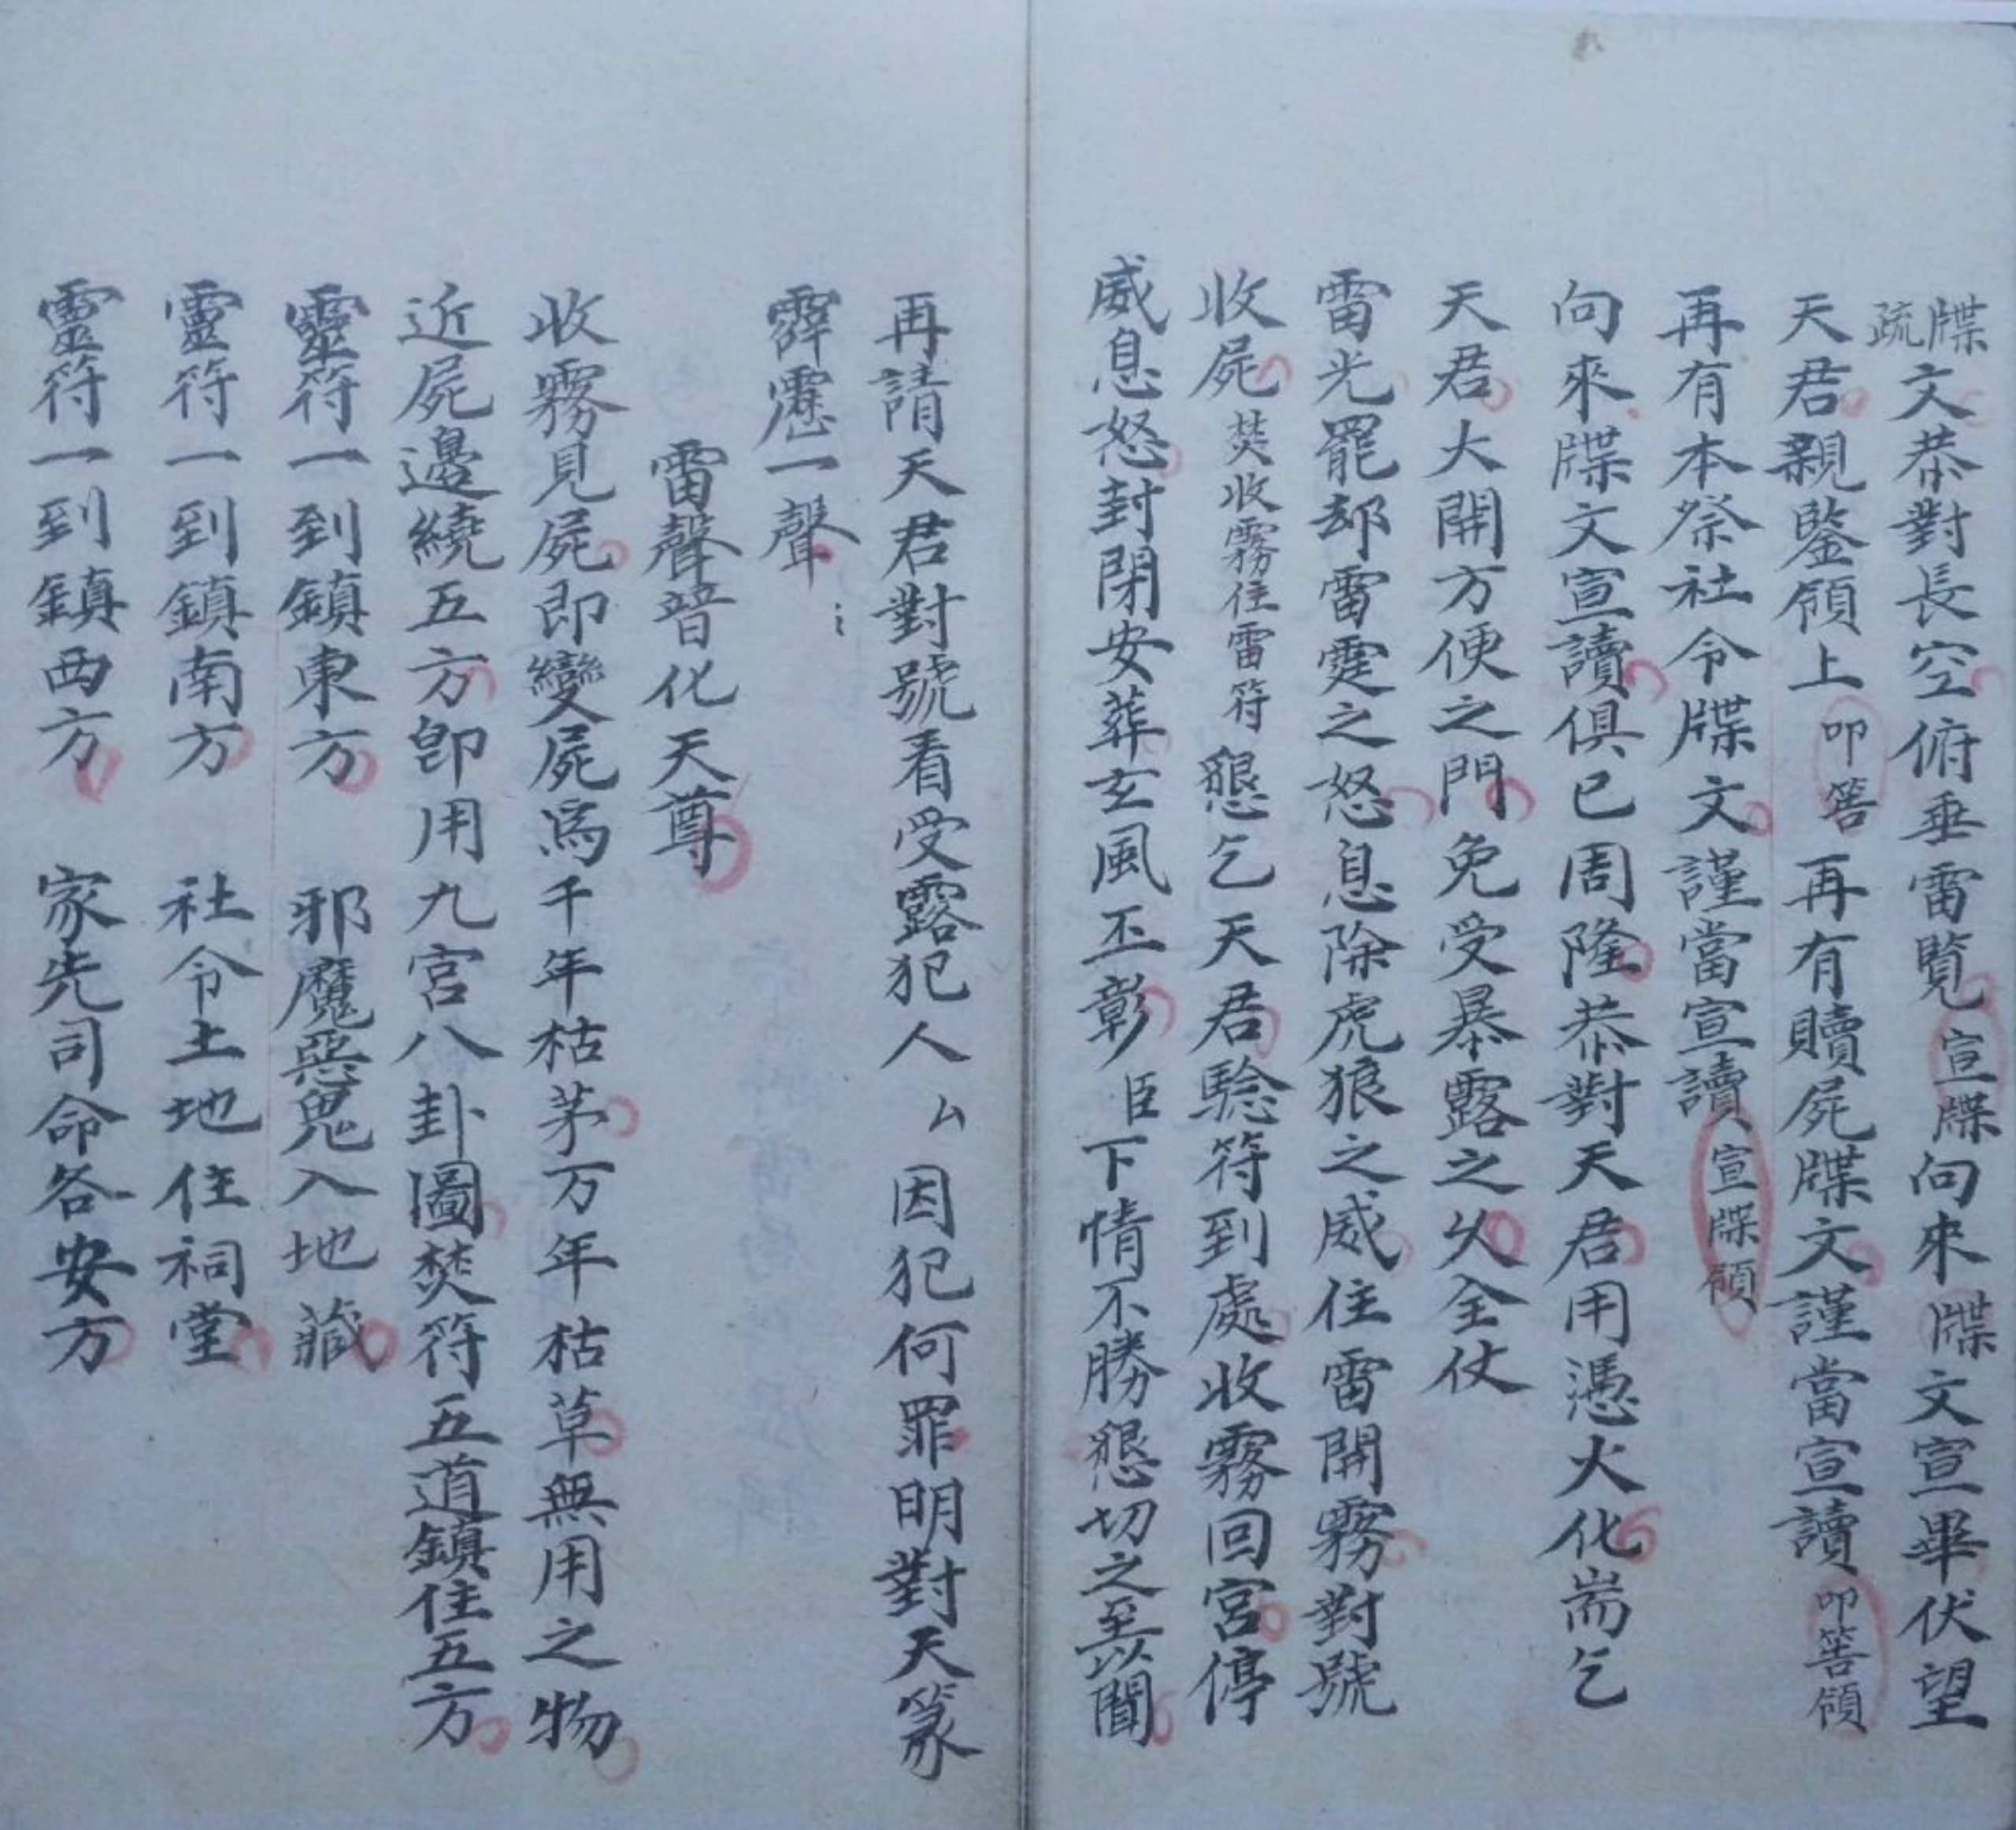 牒疏文恭對長空俯垂雷覧宣牒向來牒文宣畢伏望
天君親鑒領上叩筶再有贖屍牒文謹當宣讀叩筶領
再有本祭社令牒文謹當宣讀宣牒領
向來牒文宣讀俱已周隆恭對天君用憑火化耑乞
天君大開方便之門免受暴露之 全仗
雷光罷却雷霆之怒息除虎狼之威住雷開霧對號
收屍焚收霧住雷符懇乞天君騐符到處收霧回宮停
威息怒封閉安葬玄風丕彰臣下情不勝懇切之至以聞
再請天君對號看受露犯人厶因犯何罪明對天篆
霹靂一聲
雷聲音化天尊
收霧見屍即變屍為千年枯茅万年枯草無用之物
近屍邊繞五方卽用九宮八卦圖焚符五道鎮住五方
靈符一到鎮東方 邪魔惡鬼入地藏
靈符一到鎮南方 社令土地住祠堂
靈符一到鎮西方 家先司命各安方